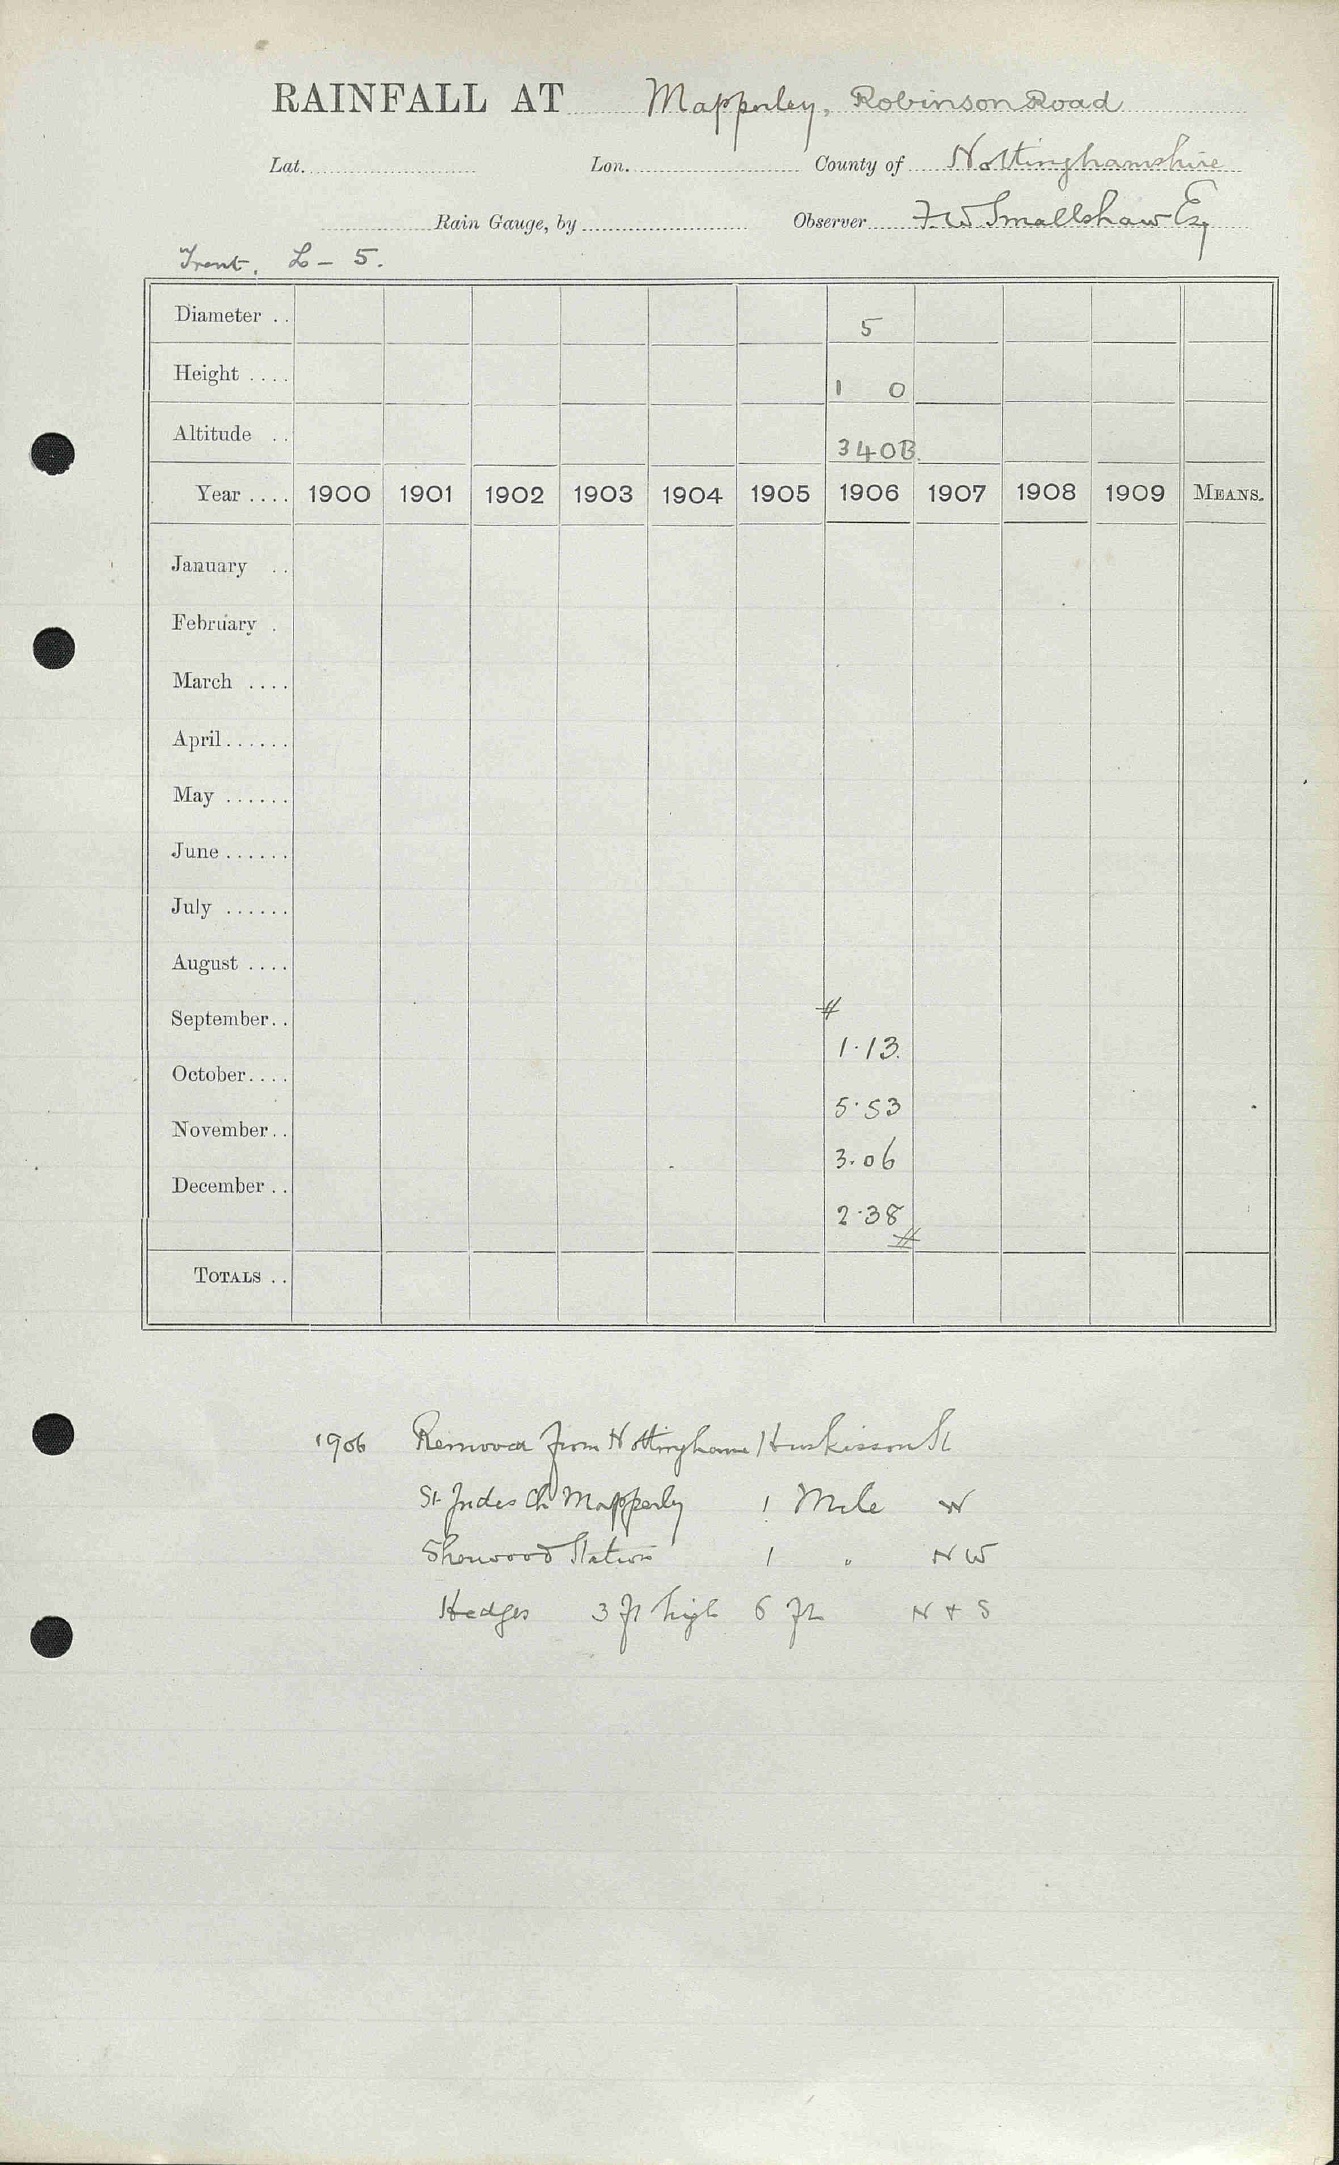 RAINFALL AT Mapperley, Robinson Road
Lat. Lon. County of Nottinghamshire
Rain Gauge, by Observer F. W. Smallshaw Esq
Trent. L – 5.
Diameter . . 5
Height . . . . 1 0
Altitude . . 340B.
Year . . . . 1900 1901 1902 1903 1904 1905 1906 1907 1908 1909 MEANS.
January . .
February .
March . . . .
April . . . . . .
May . . . . . .
June . . . . . .
July . . . . . .
August . . . .
September . . 1·13.
October . . . . 5·53
November . . 3.06
December . . 2·38
TOTALS . .
1906 Removed from Nottingham Huskisson St
St Judes Ch Mapperley 1 Mile W
Sherwood Station 1 " NW
Hedges 3 ft high 6 ft N + S